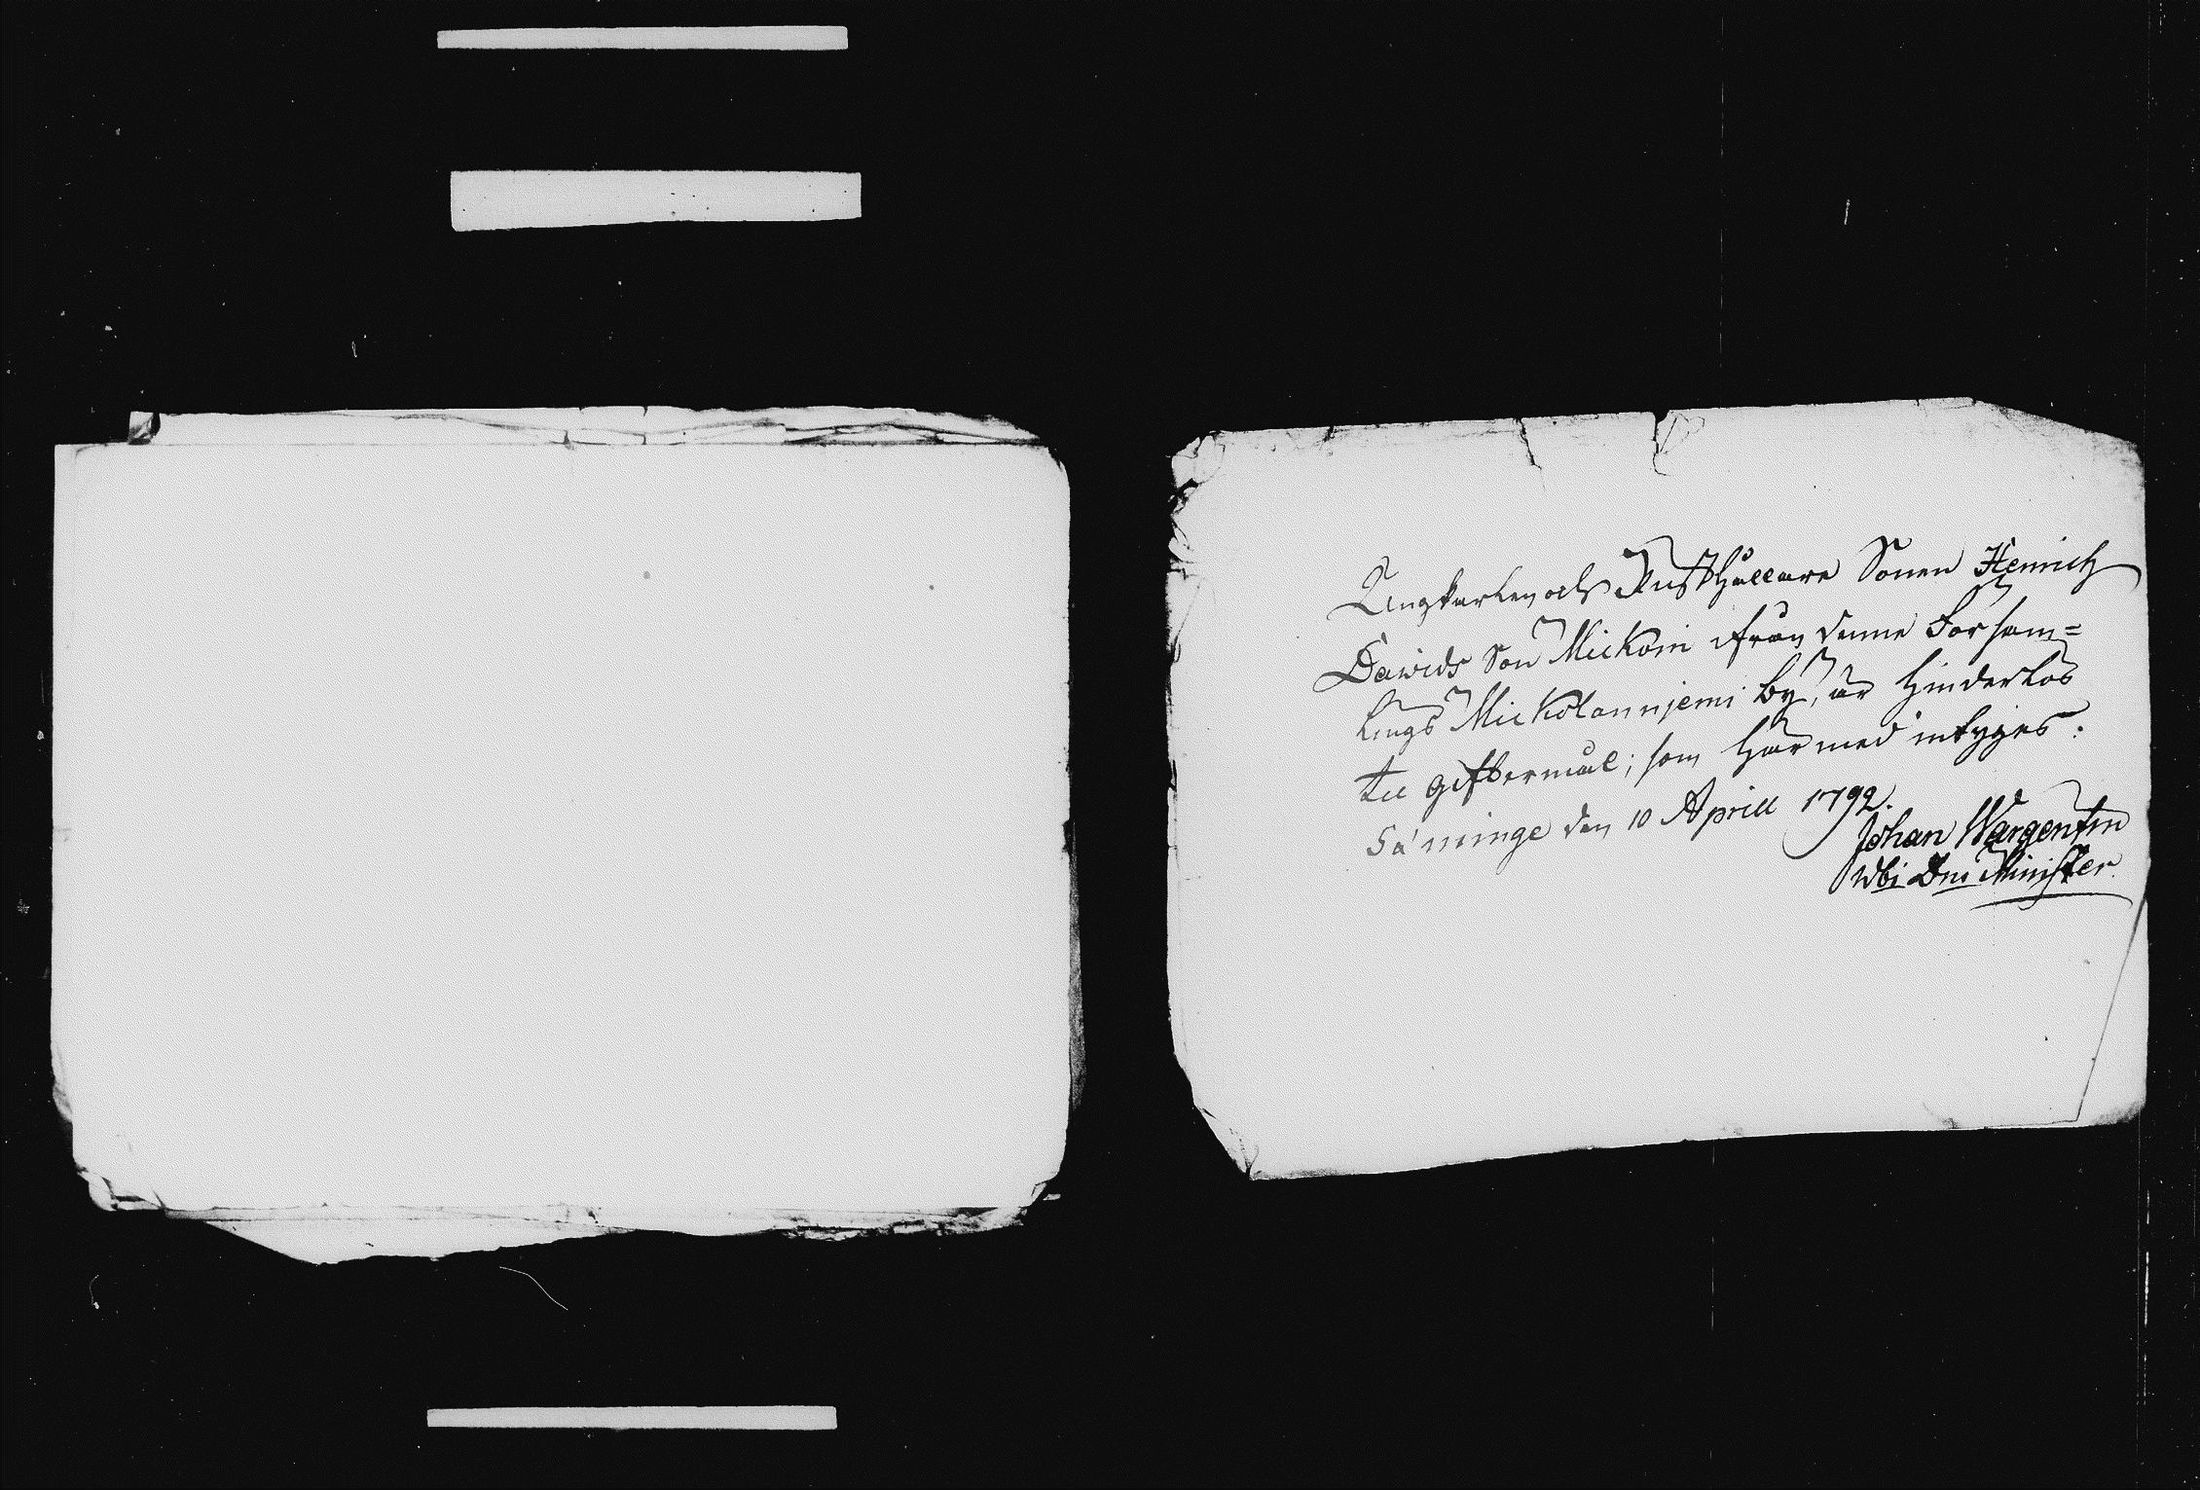 Ungkarlen och Rusthållare Sonen Henrich
Dawids Son Mickoin ifrån denne Församlings=
lings Mickolanniemi by, är hinderlös
till gifttermål; som härmed intyges.
Sä'minge den 10 Aprill 1792.
Johan Wargentin
Vbi Dni Minister.